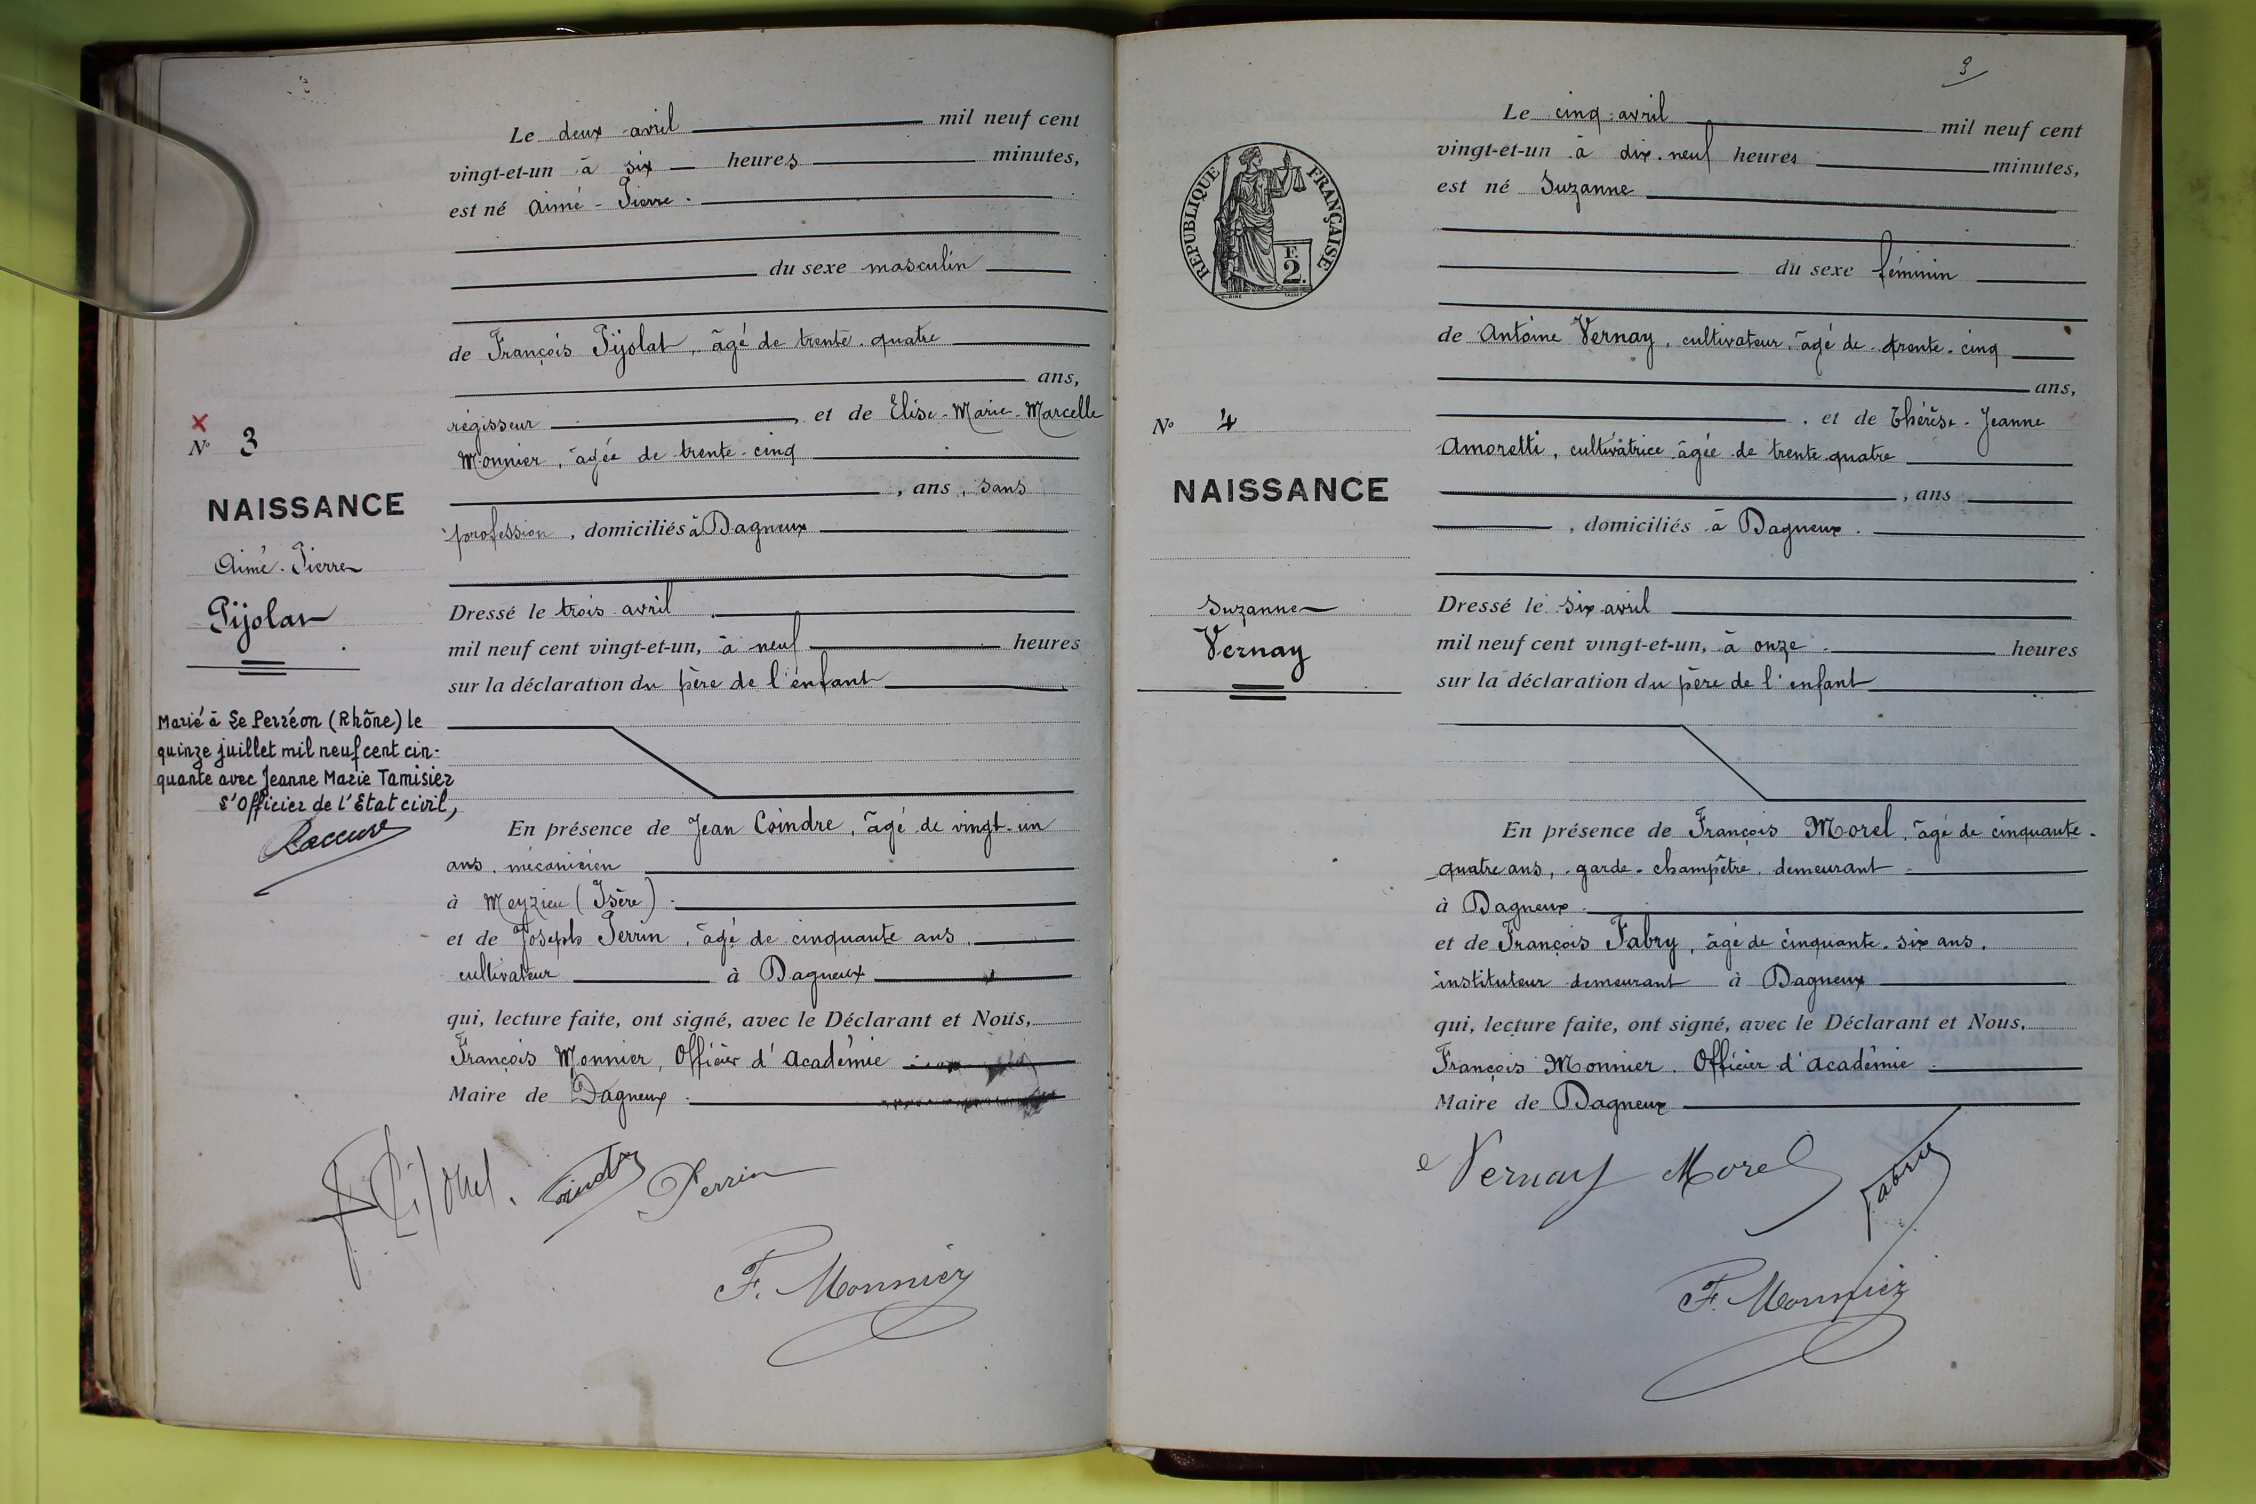 Le deux avril mil neuf cent
vingt-et-un à six heures minutes,
est né Aimé-Pierre.
du sexe masculin
de François Pijolat, âgé de trente-quatre
ans,
régisseur, et de Elise-Marie-Marcelle
Monnier, âgée de trente-cinq
, ans, sans
profession, domiciliés à Dagneux
Dressé le trois avril
mil neuf cent vingt-et-un, à neuf heures
sur la déclaration du père de l'enfant
En présence de Jean Coindre, âgé de vingt-un
ans, mécanicien
à Meyzieu (Isère)
et de Joseph Perrin, âgé de cinquante ans,
cultivateur à Dagneux
qui, lecture faite, ont signé, avec le Déclarant et Nous,
François Monnier, Officier d'Académie
Maire de Dagneux.
Coindre Perrin
F. Monnier
N° 3
NAISSANCE
Aimé-Pierre
Pijolat
Marié à Le Perréon (Rhône) le
quinze juillet mil neuf cent cin-
quante avec Jeanne Marie Tamisier
L'Officier de l'Etat civil,
3
Le cinq avril mil neuf cent
vingt-et-un à dix-neuf heures minutes,
est né Suzanne
du sexe féminin
de Antoine Vernay, cultivateur, âgé de trente-cinq
ans,
, et de Thérèse-Jeanne
Amoretti, cultivatrice âgée de trente-quatre
, ans
, domiciliés à Dagneux.
Dressé le six avril
mil neuf cent vingt-et-un, à onze heures
sur la déclaration du père de l'enfant
En présence de François Morel, âgé de cinquante-
quatre ans, garde-champêtre, demeurant
à Dagneux.
et de François Fabry, âgé de cinquante-six ans,
instituteur demeurant à Dagneux
qui, lecture faite, ont signé, avec le Déclarant et Nous,
François Monnier, Officier d'Académie
Maire de Dagneux
Vernay Morel Fabry
F. Monnier
RÉPUBLIQUE FRANÇAISE
F.
2.
N° 4
NAISSANCE
Suzanne
Vernay